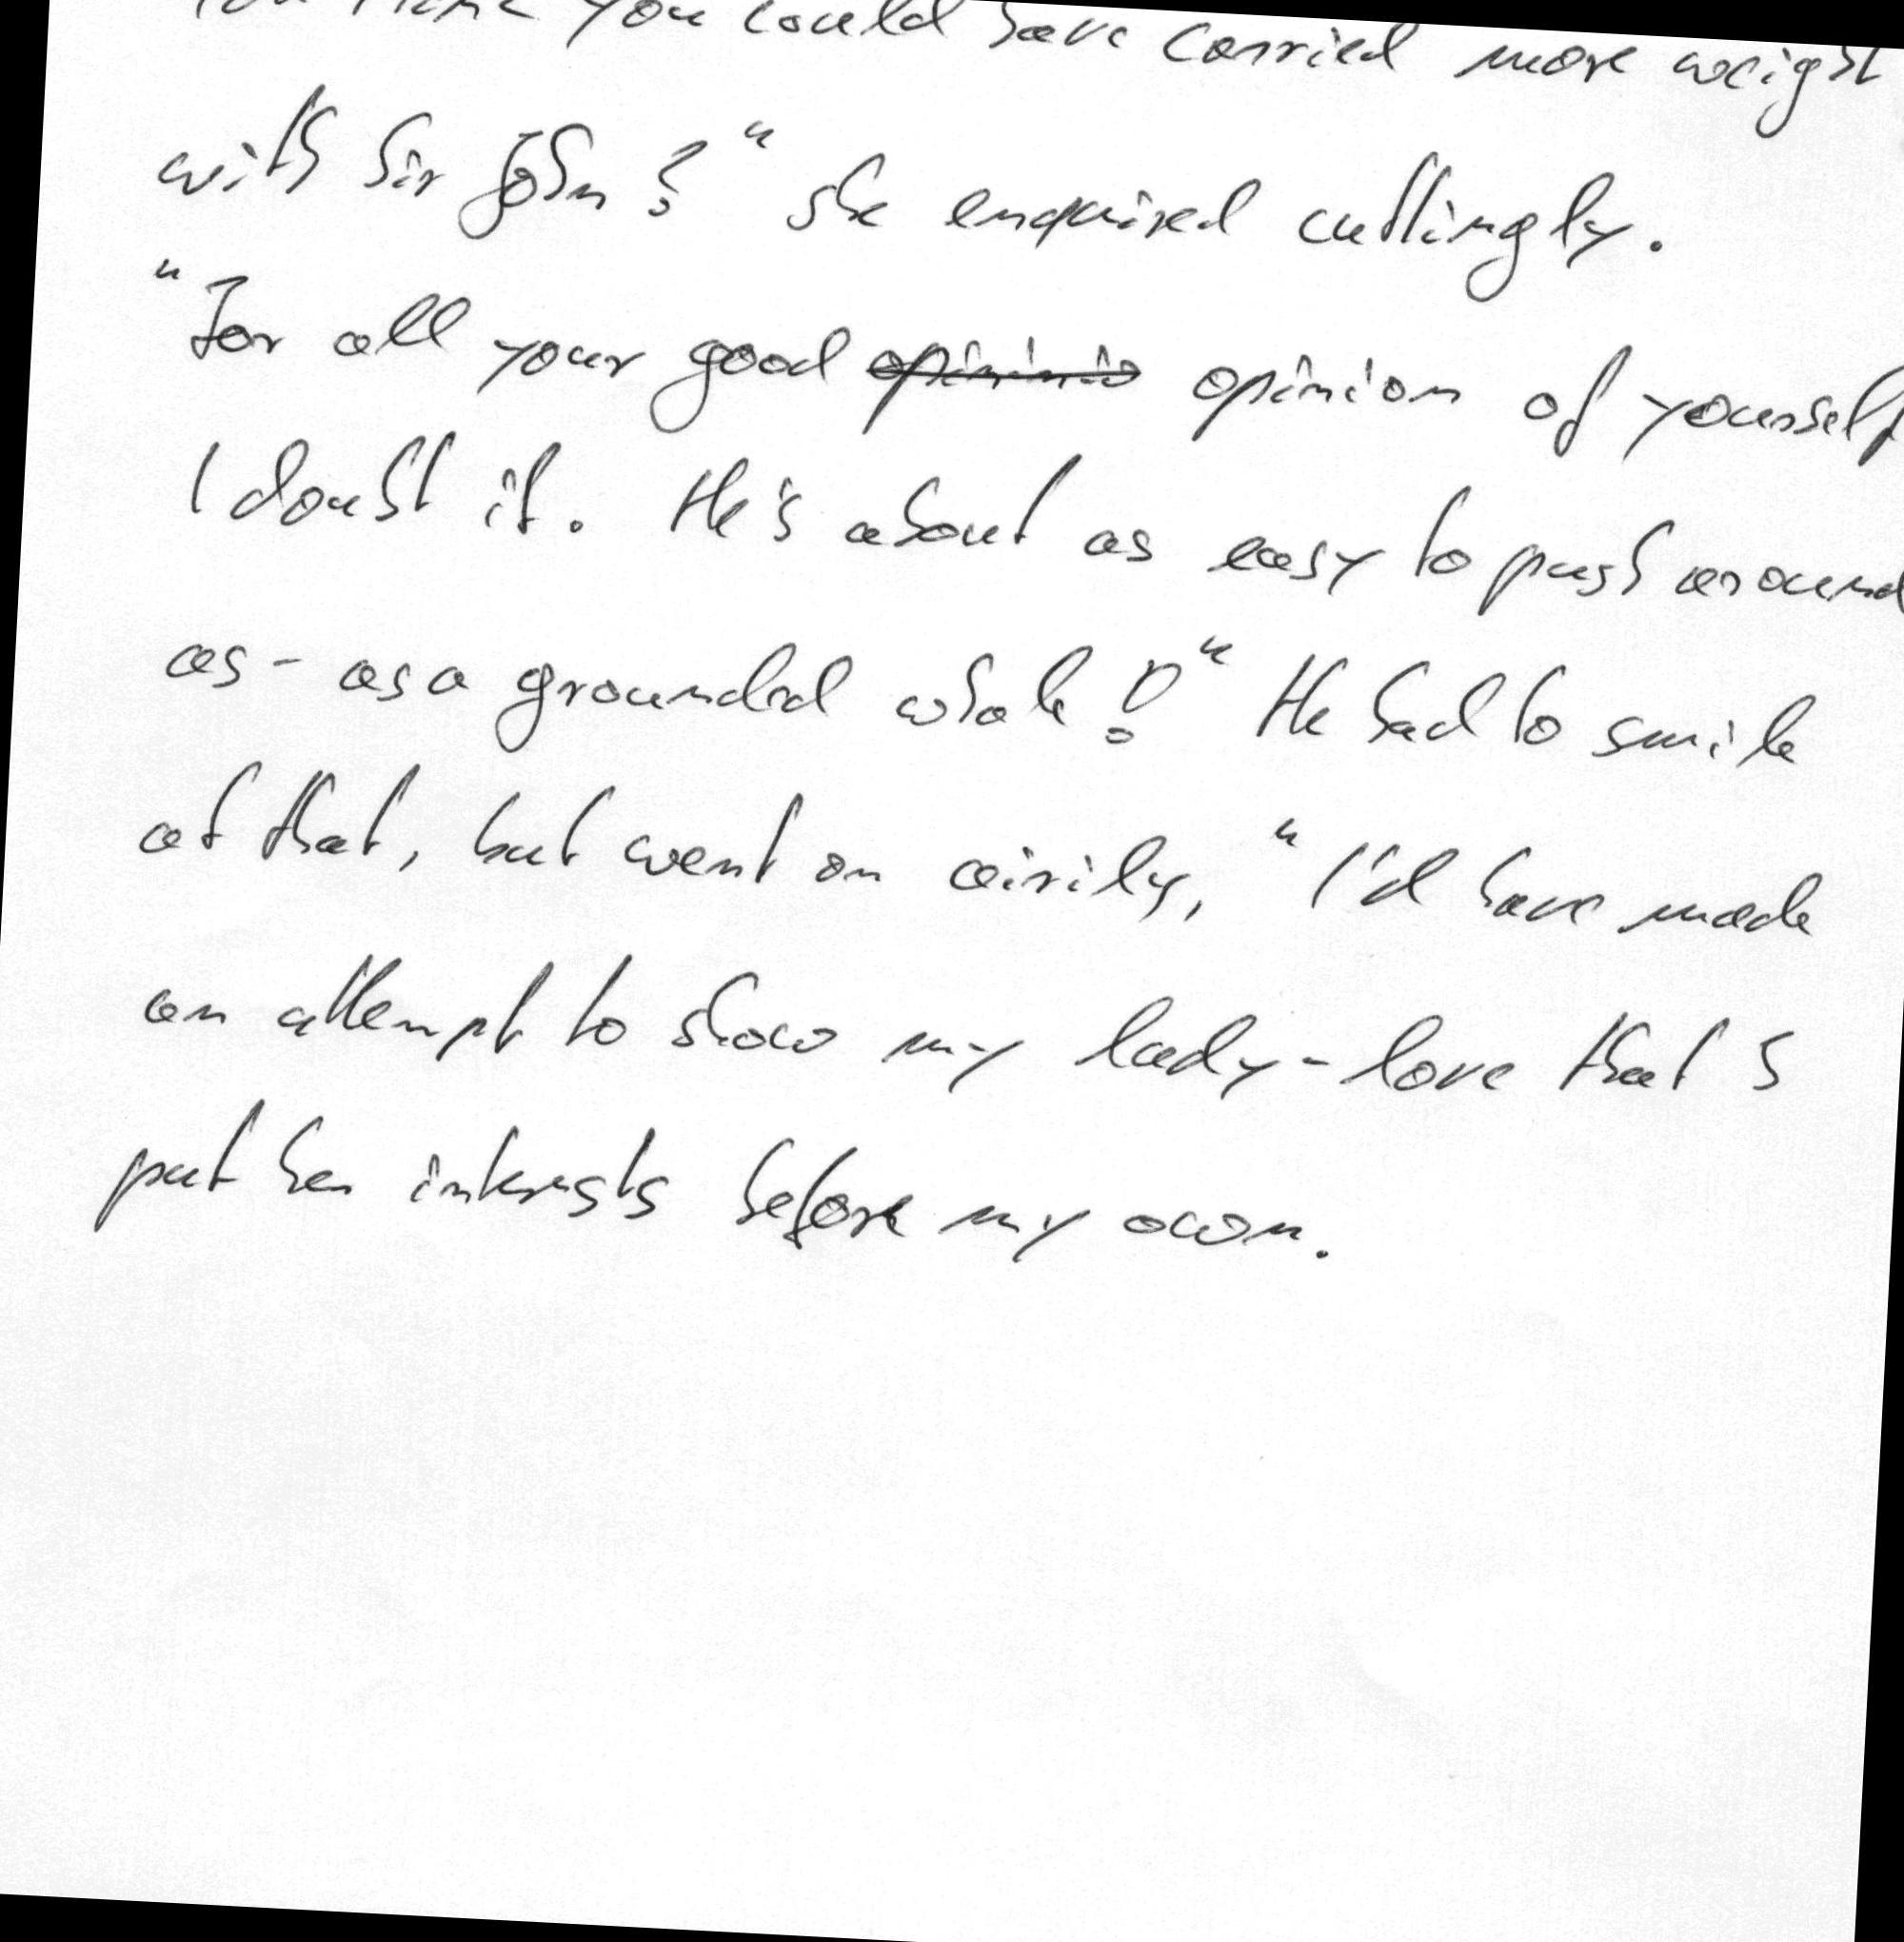 You think you could have carried more weight
with Sir John?" she enquired cuttingly.
"For all your good opininio opinion of yourself
I doubt it. He's about as easy to push around
as - as a grounded whale!" He had to smile
at that, but went on airily, "I'd have made
an attempt to show my lady-love that I
put her interests before my own.